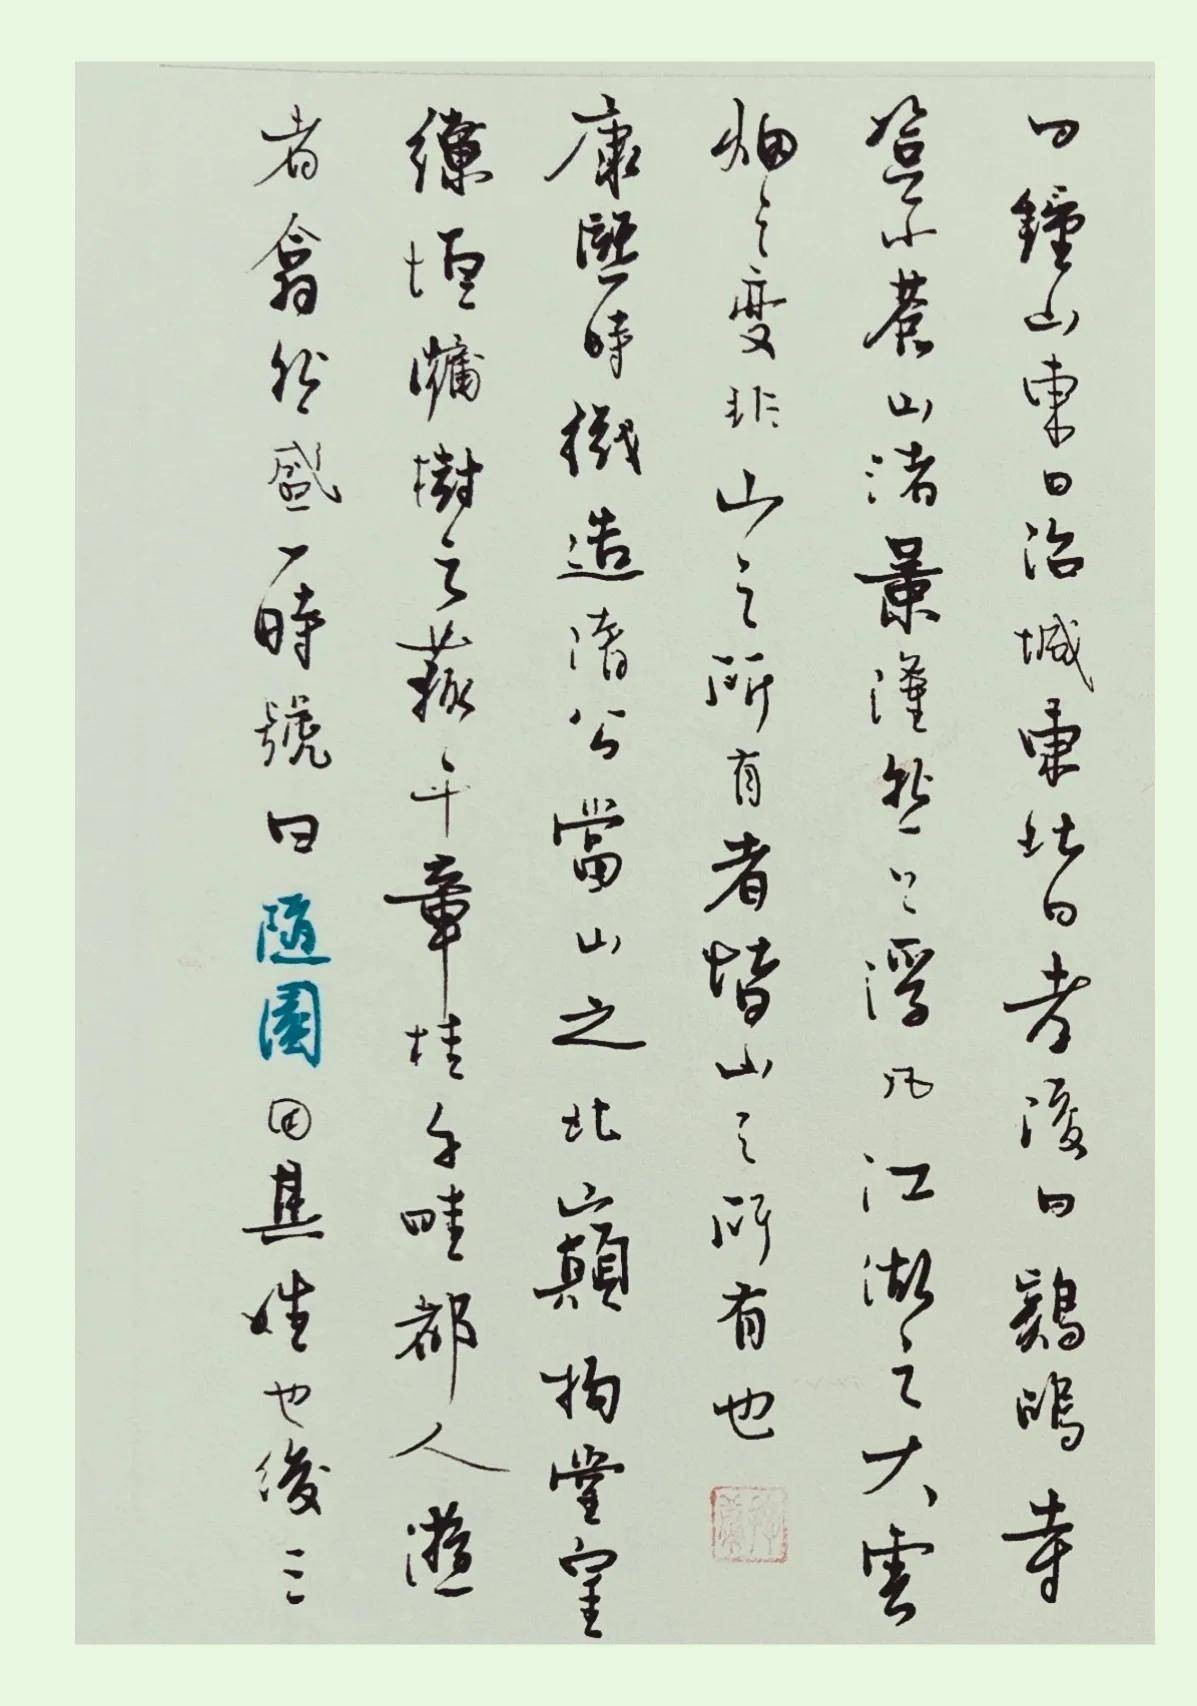 曰鐘山東曰冶城東北曰孝陵曰鷄鳴寺
登小蒼山諸景隆然上浮凡江湖之大雲
烟之变非山之所有者皆山之所有也
康熙時織造隋公當山之北巔構堂皇
繚垣牖樹之萩千章桂千畦都人遊
者翕然盛一時號曰隨園因其姓也後三